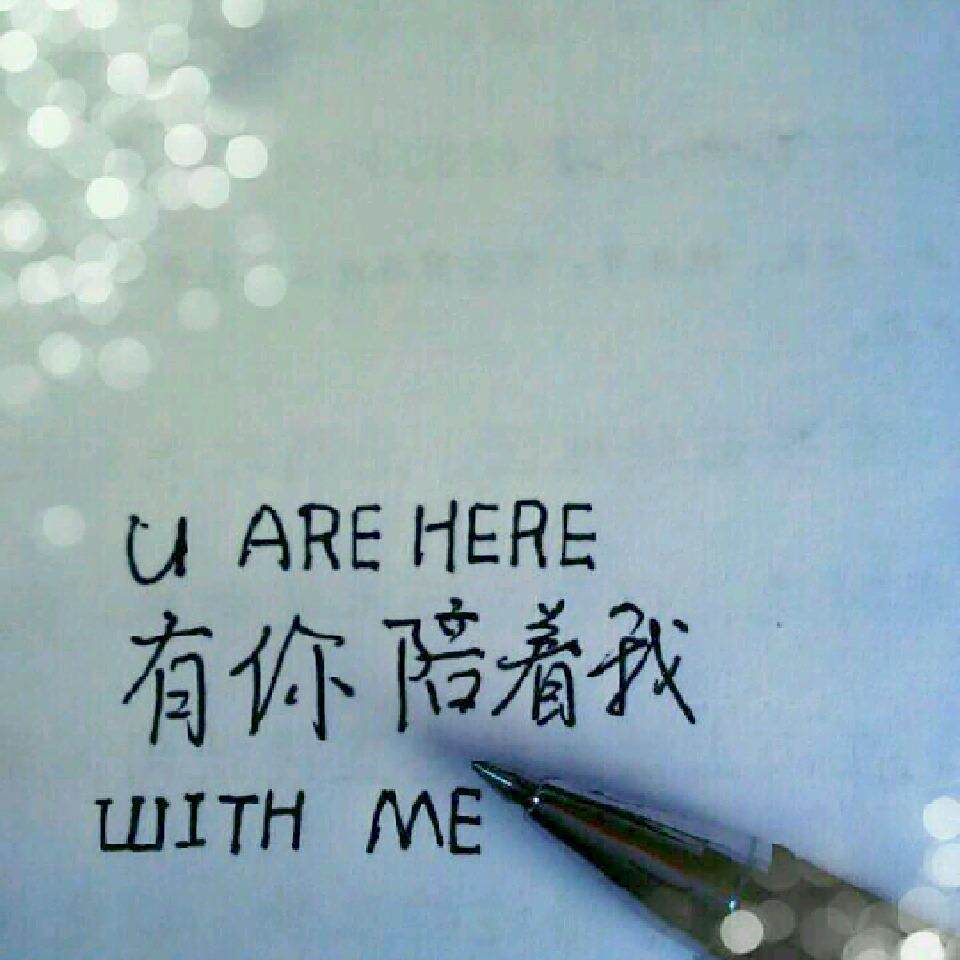 U ARE HERE
有你陪着我
WITH ME